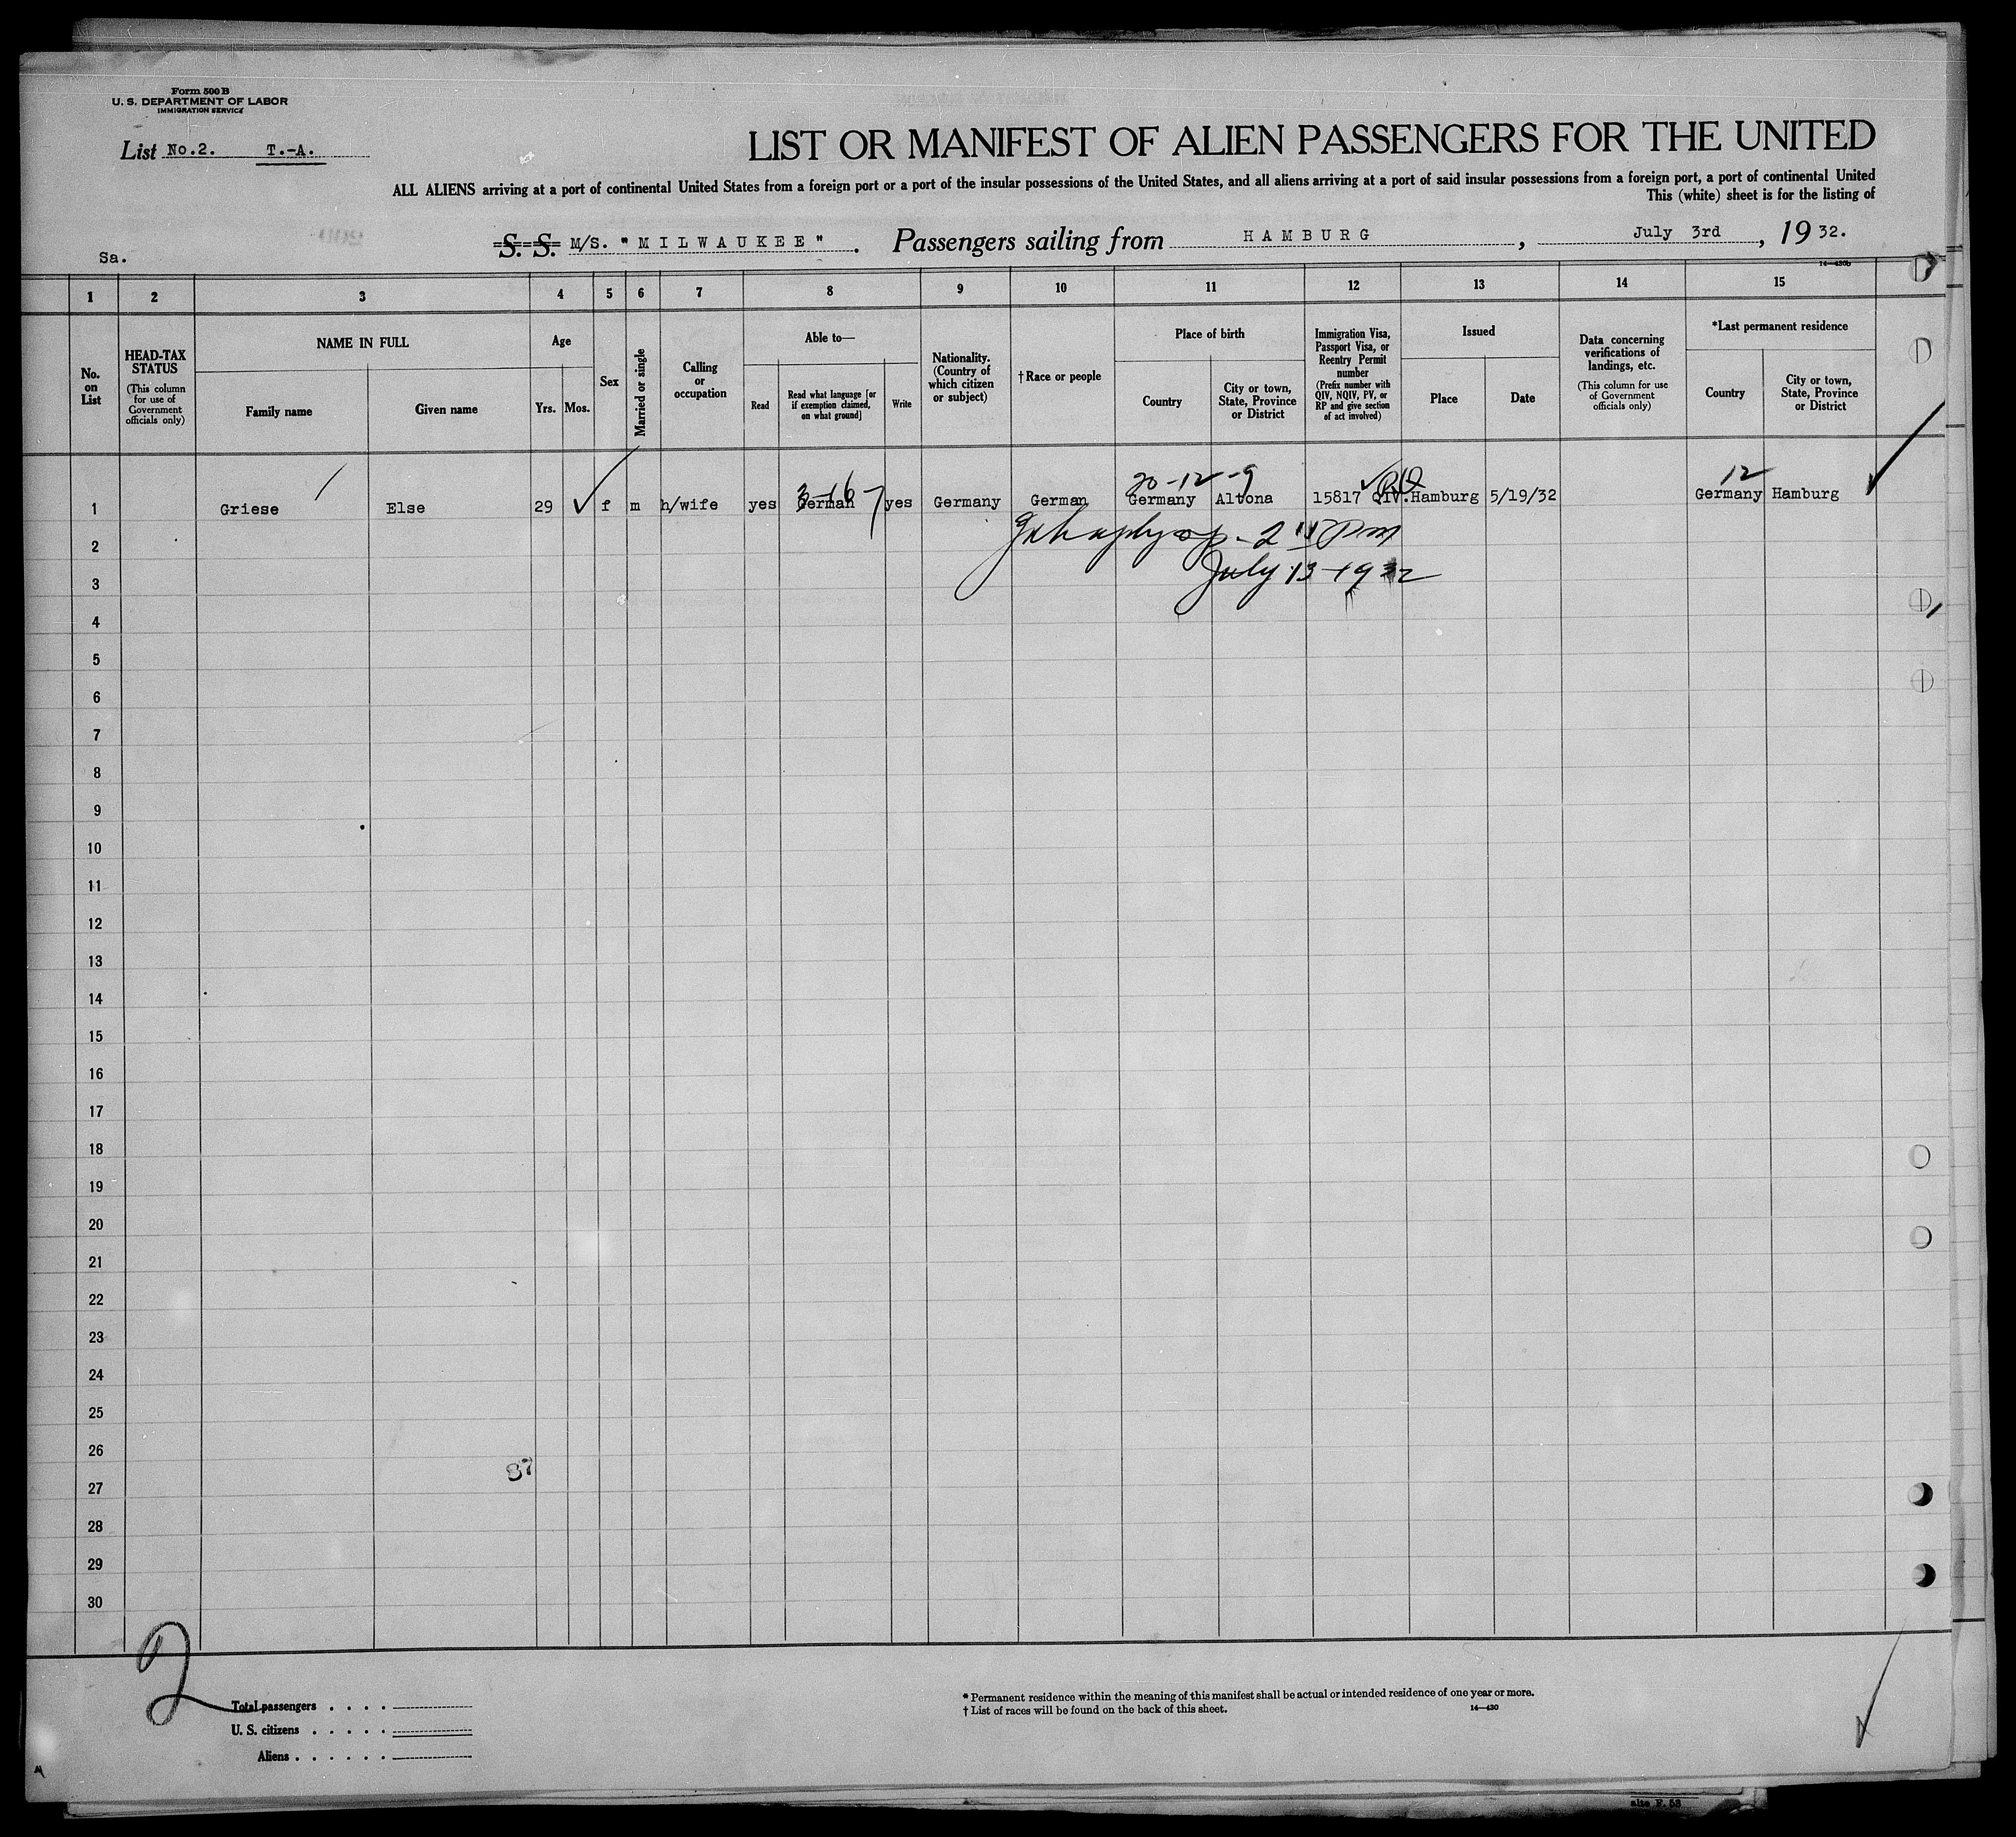 Form 500 B
U. S. DEPARTMENT OF LABOR
IMMIGRATION SERVICE
List No.2. T.-A.
LIST OR MANIFEST OF ALIEN PASSENGERS FOR THE UNITED
ALL ALIENS arriving at a port of continental United States from a foreign port or a port of the insular possessions of the United States, and all aliens arriving at a port of said insular possessions from a foreign port, a port of continental United
This (white) sheet is for the listing of
Sa.
S. S. M/S. "MILWAUKEE". Passengers sailing from HAMBURG, July 3rd, 19 32.
14—430b
1 2 3 4 5 6 7 8 9 10 11 12 13 14 15
No. on List
HEAD-TAX STATUS
(This column for use of Government officials only)
NAME IN FULL
Family name
Given name
Age
Yrs. Mos.
Sex
Married or single
Calling or occupation
Able to—
Read
Read what language [or if exemption claimed, on what ground]
Write
Nationality. (Country of which citizen or subject)
†Race or people
Place of birth
Country
City or town, State, Province or District
Immigration Visa, Passport Visa, or Reentry Permit number
(Prefix number with QIV, NQIV, PV, or RP and give section of act involved)
Issued
Place
Date
Data concerning verifications of landings, etc.
(This column for use of Government officials only)
*Last permanent residence
Country
City or town, State, Province or District
20-12-9
12
1 Griese Else 29 f m h/wife yes German yes Germany German Germany Altona 15817 QIV. Hamburg 5/19/32 Germany Hamburg
2
July 13-1932
3
4
5
6
7
8
9
10
11
12
13
14
15
16
17
18
19
20
21
22
23
24
25
26
87
27
28
29
30
2
Total passengers
U. S. citizens
Aliens
* Permanent residence within the meaning of this manifest shall be actual or intended residence of one year or more.
† List of races will be found on the back of this sheet.
14—430